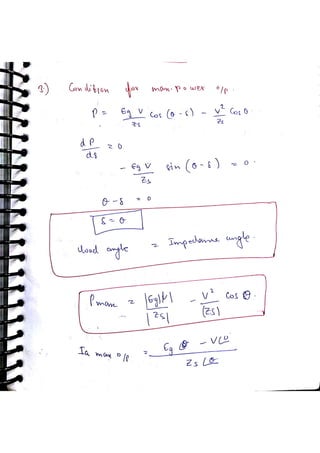 3) Condition for max. power o/p.
P = Eg V / Zs cos (θ - δ) - V² / Zs Cos θ
dP / dδ = 0
- Eg V / Zs sin (θ - δ) = 0.
θ - δ = 0
δ = θ
load angle = Impedance angle.
Pmax = |Eg||V| / |Zs| - V² / |Zs| Cos θ.
Ia max o/p = Eg ∠θ - V∠0 / Zs ∠θ